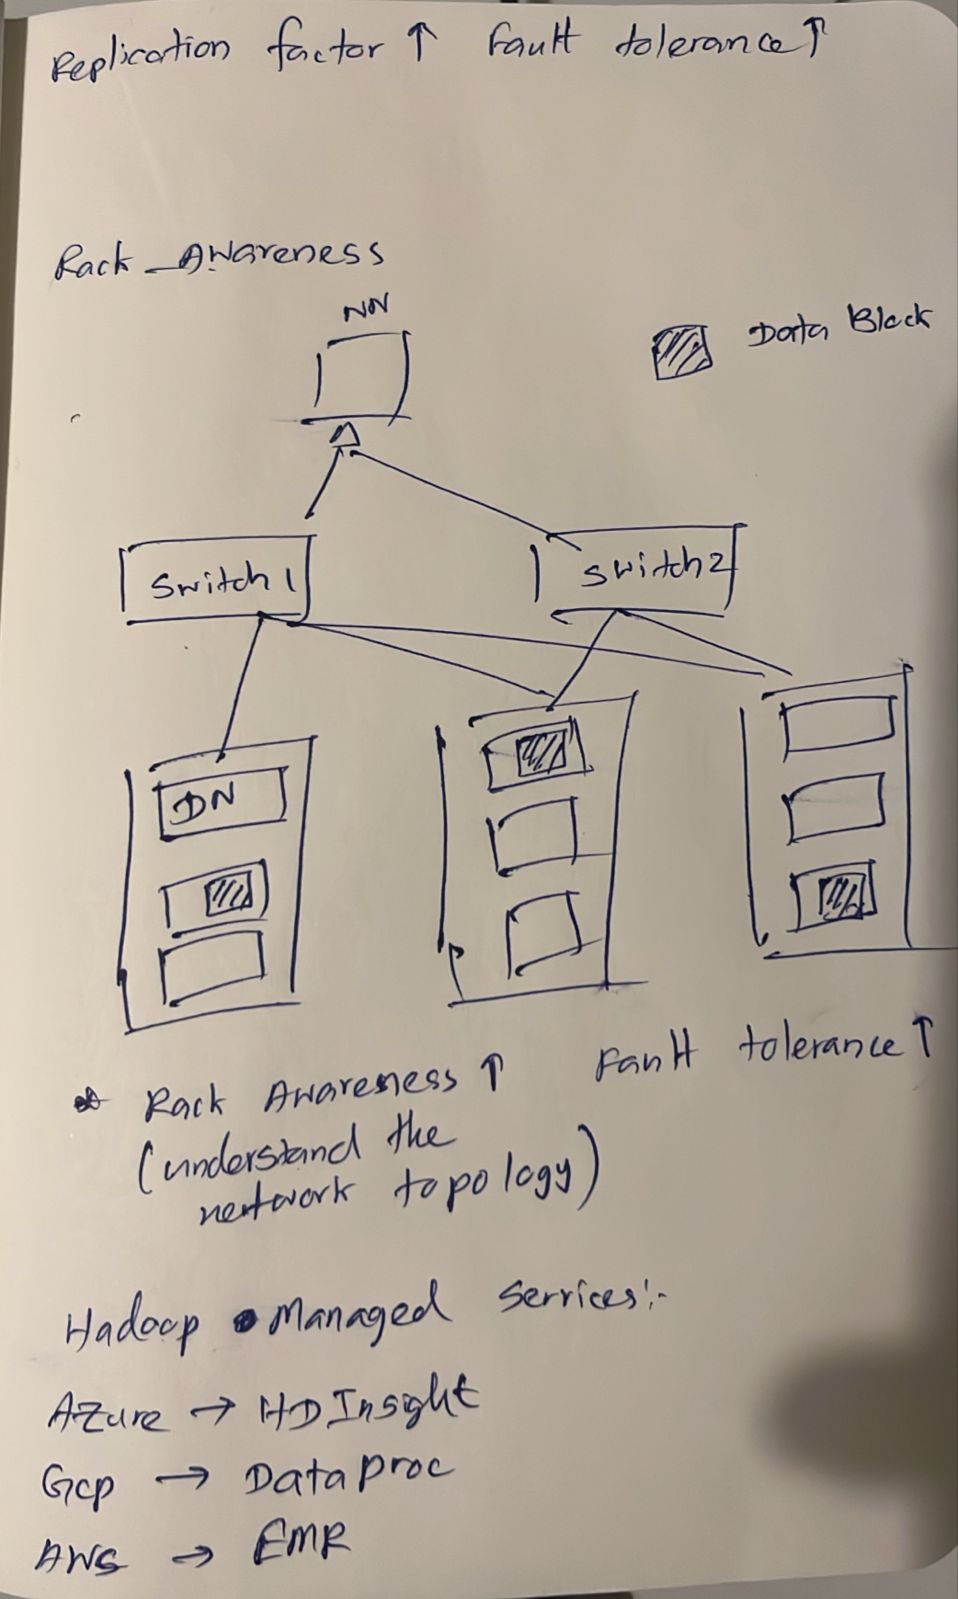 Replication factor ↑ Fault tolerance ↑
Rack Awareness
NN
Data Block
Switch 1
Switch 2
DN
* Rack Awareness ↑ Fault tolerance ↑
(understand the
network topology)
Hadoop Managed Services:-
Azure → HDInsight
Gcp → Dataproc
AWS → EMR